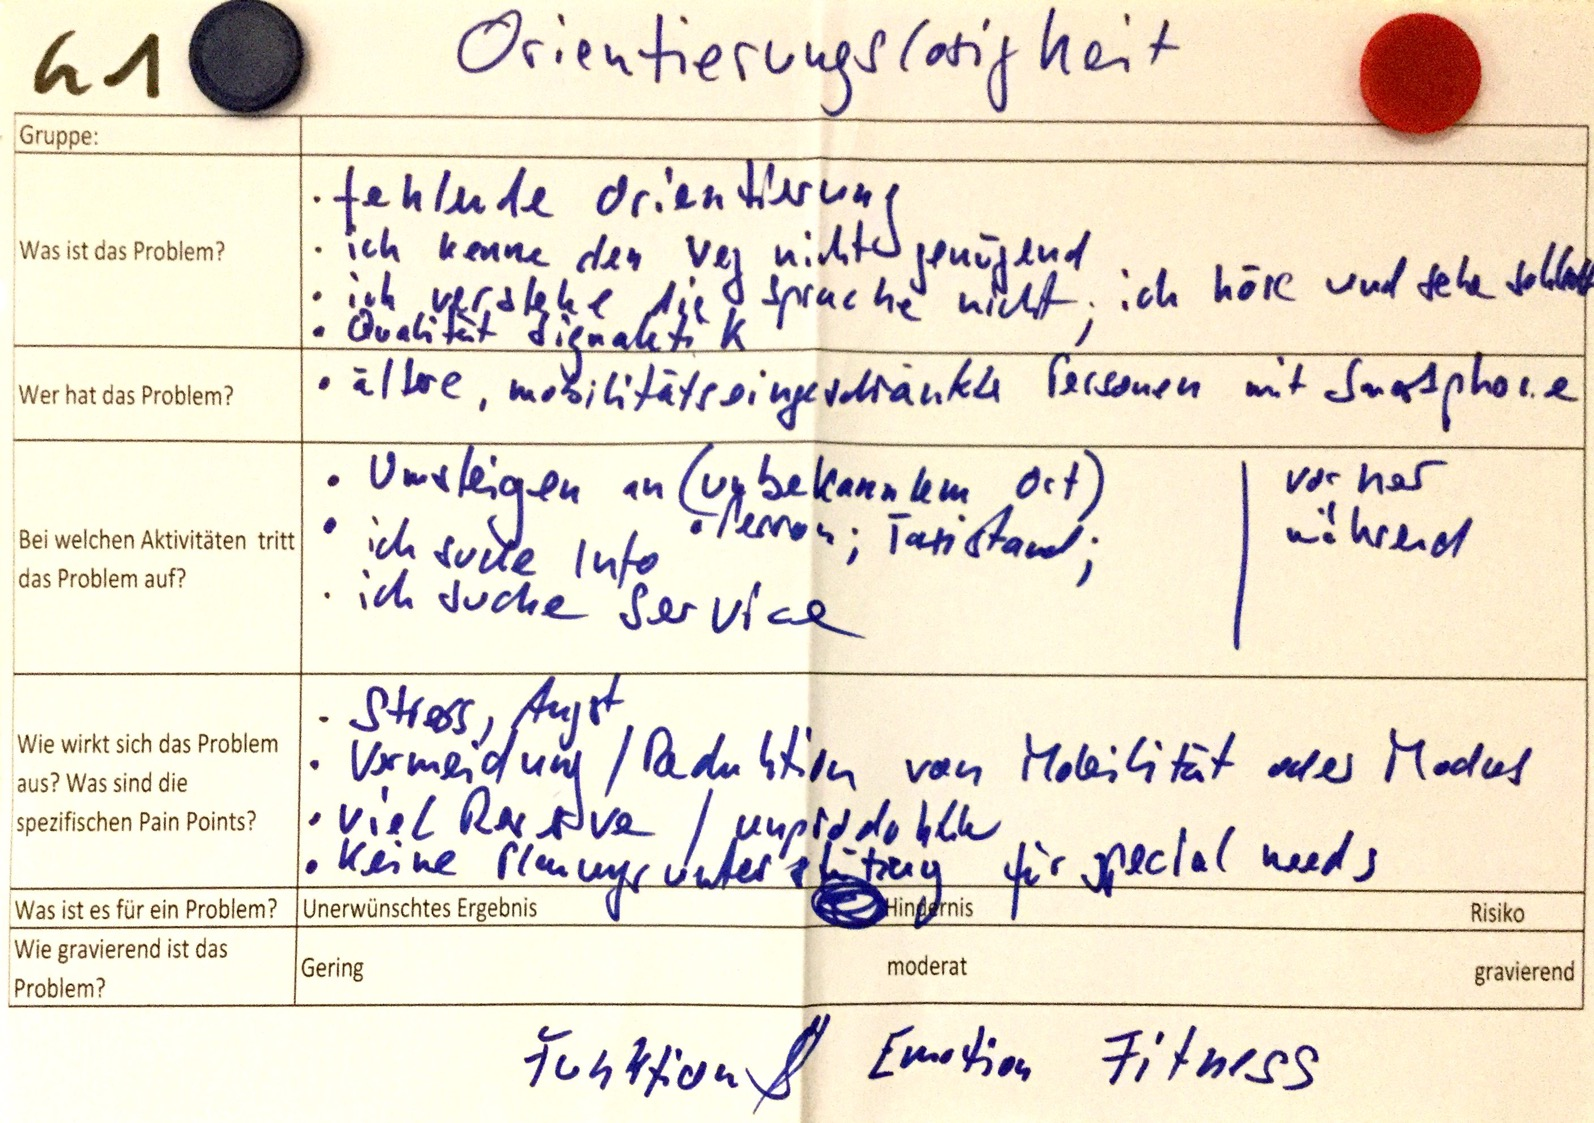 G1
Orientierungslosigkeit
Gruppe:
Was ist das Problem?
· fehlende Orientierung
· ich kenne den Weg nicht genügend
· ich verstehe die Sprache nicht; ich höre und sehe schlecht
· Qualität Signaletik
Wer hat das Problem?
· ältere, mobilitätseingeschränkte Personen mit Smartphone
Bei welchen Aktivitäten tritt
das Problem auf?
· Umsteigen an (unbekanntem Ort)
· Perron; Taxistand;
· ich suche Info
· ich suche Service
vorher
während
Wie wirkt sich das Problem
aus? Was sind die
spezifischen Pain Points?
· Stress, Angst
· Vermeidung / Reduktion von Mobilität oder Modus
· viel Reserve / unproduktiv
· keine Planungsunterstützung für special needs
Was ist es für ein Problem? Unerwünschtes Ergebnis Hindernis Risiko
Wie gravierend ist das
Problem?
Gering moderat gravierend
Funktion Emotion Fitness